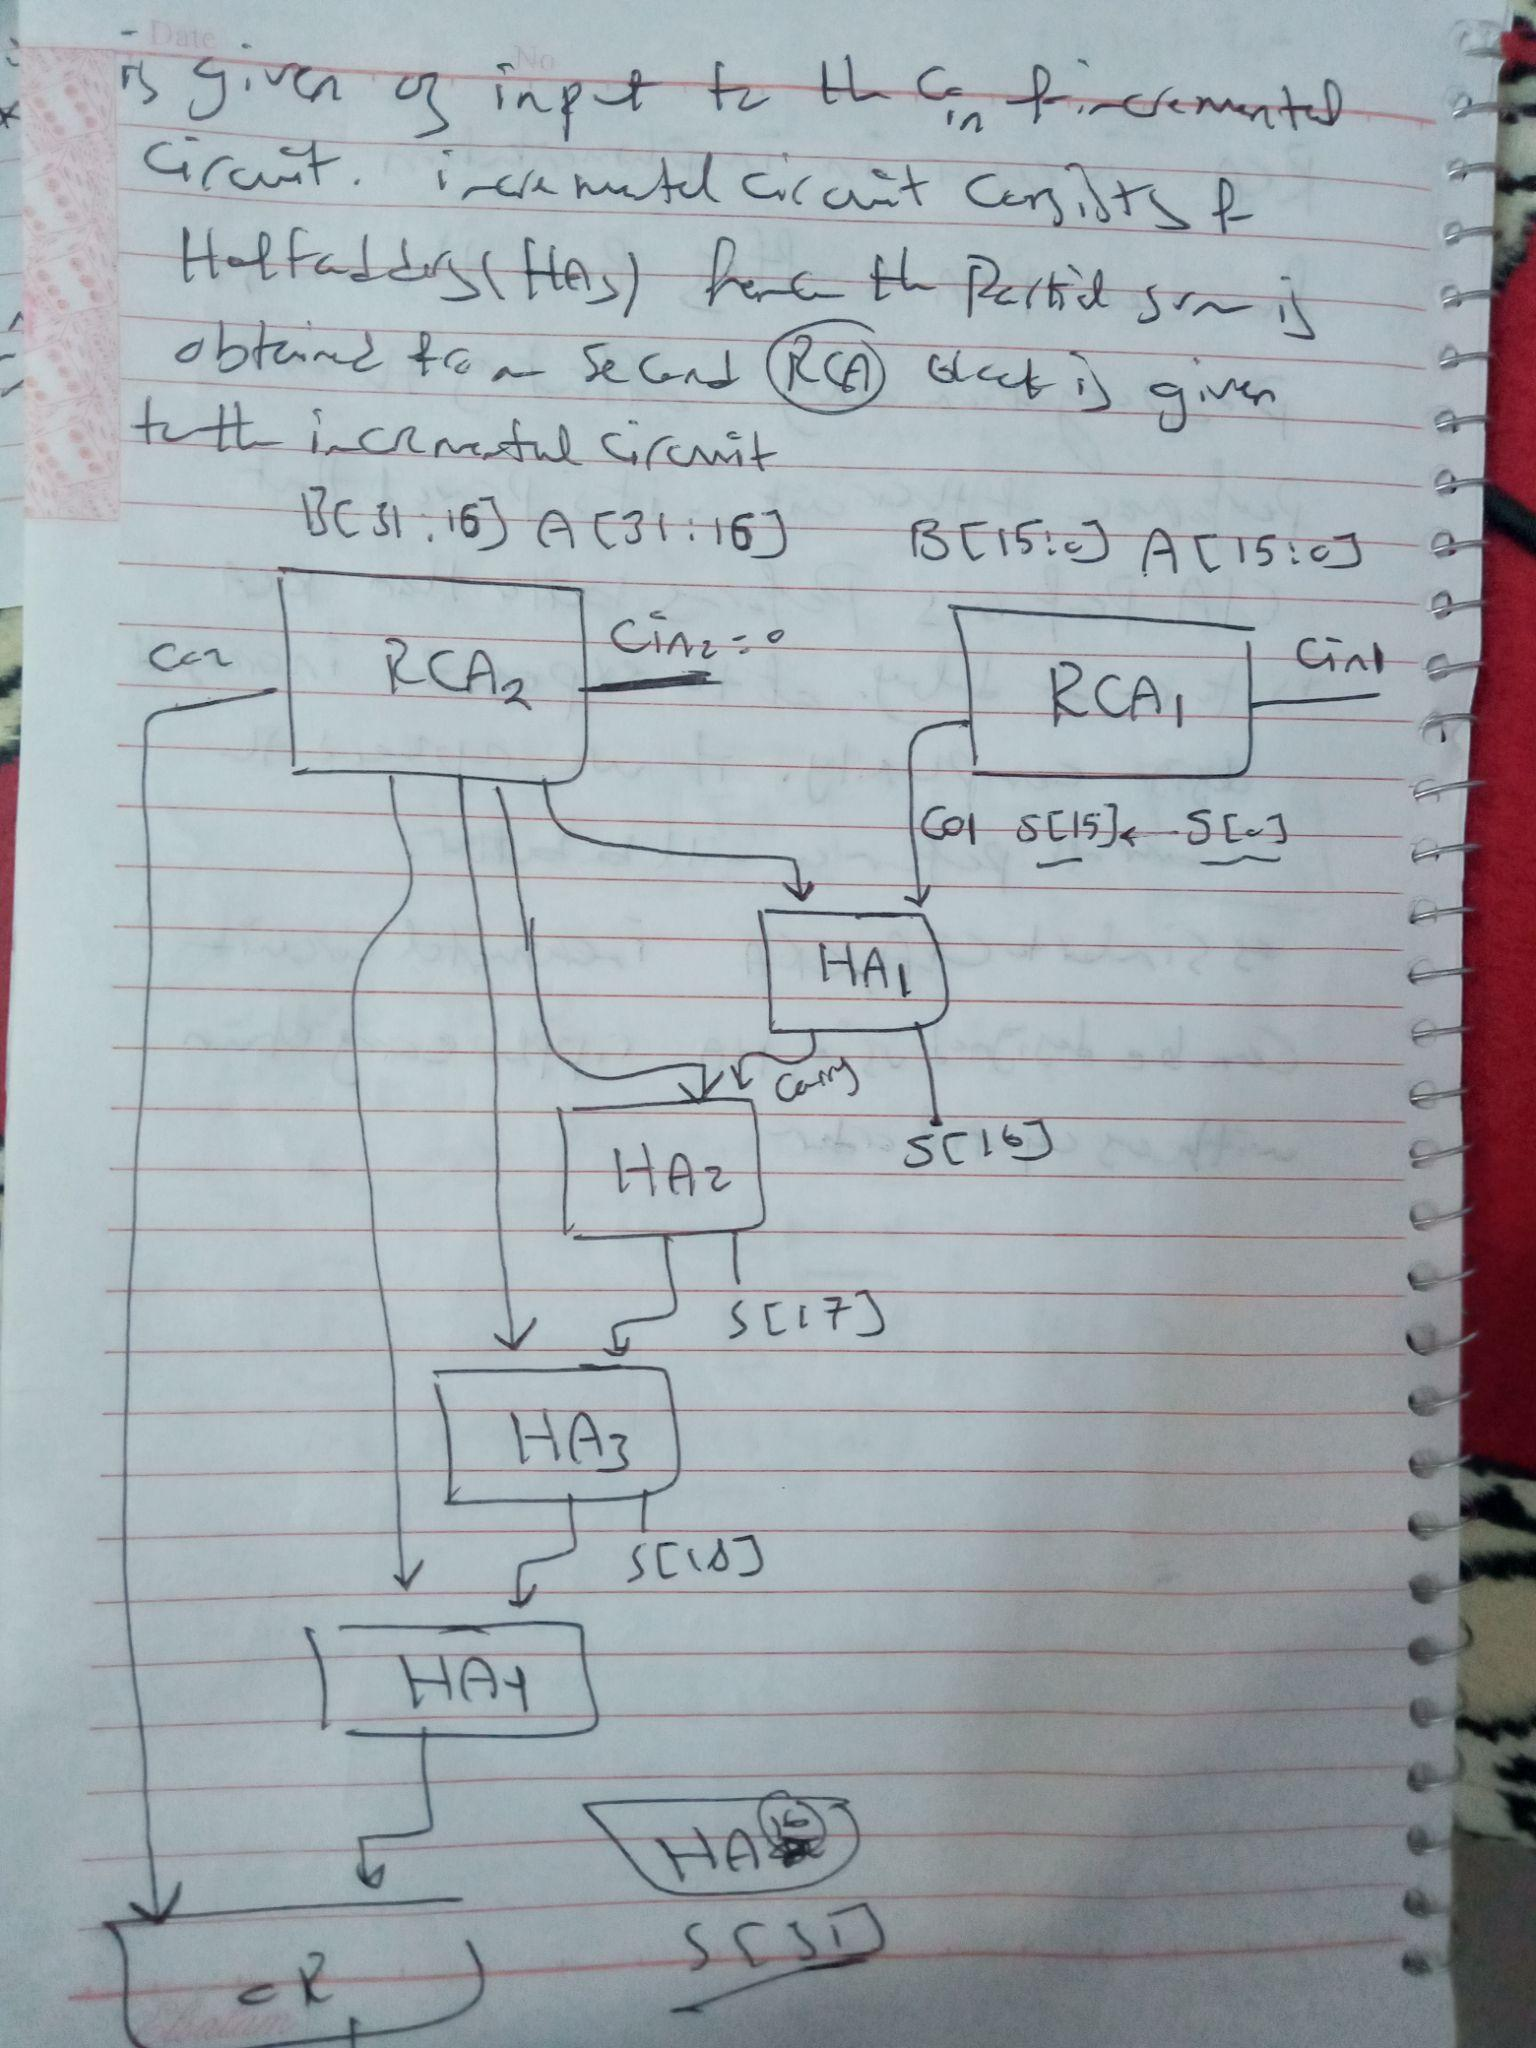 Date
No
is given as input to the Cin of incremental
circuit. incremental circuit consists of
Half adders (HAs) hence the Partial sum is
obtained from Second RCA block is given
to the incremental circuit
B[31:16] A[31:16] B[15:0] A[15:0]
Co2 RCA2 Cin2=0 RCA1 Cin1
Co1 S[15] S[0]
HA1
Carry
HA2 S[16]
S[17]
HA3
S[18]
HA4
HA16
S[31]
OR